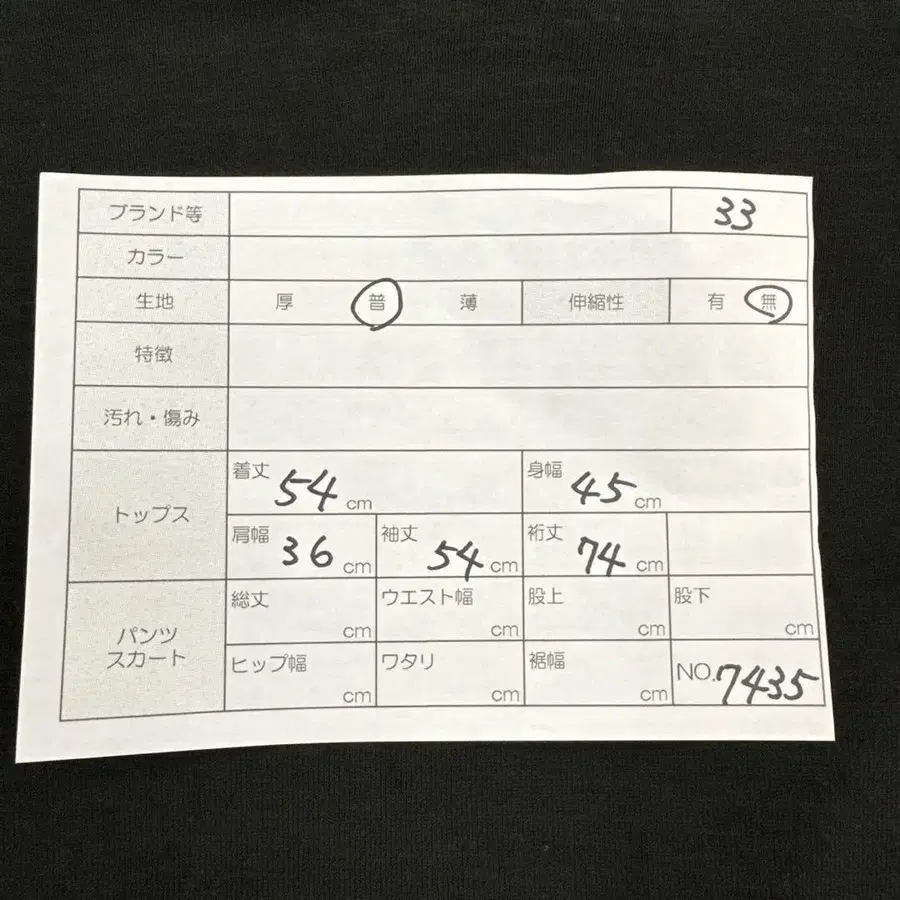 ブランド等 33
カラー
生地 厚 普 薄 伸縮性 有 無
特徴
汚れ・傷み
トップス
着丈 54 cm 身幅 45 cm
肩幅 36 cm 袖丈 54 cm 裄丈 74 cm
パンツ
スカート
総丈 cm ウエスト幅 cm 股上 cm 股下 cm
ヒップ幅 cm ワタリ cm 裾幅 cm NO.7435